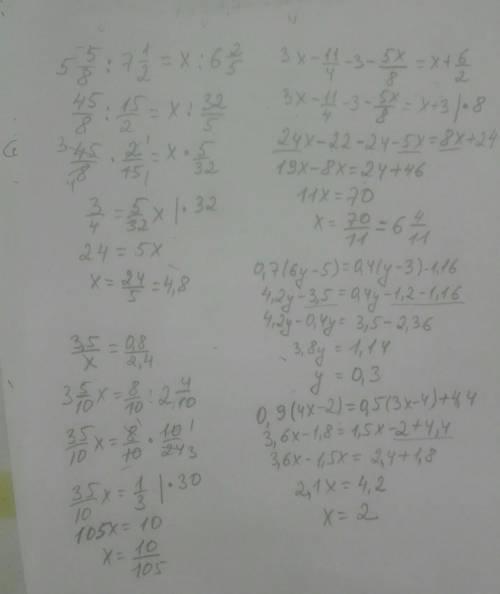 5 5/8 : 7 1/2 = x : 6 2/5
45/8 : 15/2 = x : 32/5
45/8 · 2/15 = x · 5/32
3/4 = 5/32 x | · 32
24 = 5x
x = 24/5 = 4,8
3,5/x = 0,8/2,4
3 5/10 x = 8/10 : 2 4/10
35/10 x = 8/10 · 10/24 3
35/10 x = 1/3 | · 30
105x = 10
x = 10/105
3x - 11/4 - 3 - 5x/8 = x + 6/2
3x - 11/4 - 3 - 5x/8 = x + 3 | · 8
24x - 22 - 24 - 5x = 8x + 24
19x - 8x = 24 + 46
11x = 70
x = 70/11 = 6 4/11
0,7(6y - 5) = 0,4(y - 3) - 1,16
4,2y - 3,5 = 0,4y - 1,2 - 1,16
4,2y - 0,4y = 3,5 - 2,36
3,8y = 1,14
y = 0,3
0,9(4x - 2) = 0,5(3x - 4) + 4,4
3,6x - 1,8 = 1,5x - 2 + 4,4
3,6x - 1,5x = 2,4 + 1,8
2,1x = 4,2
x = 2